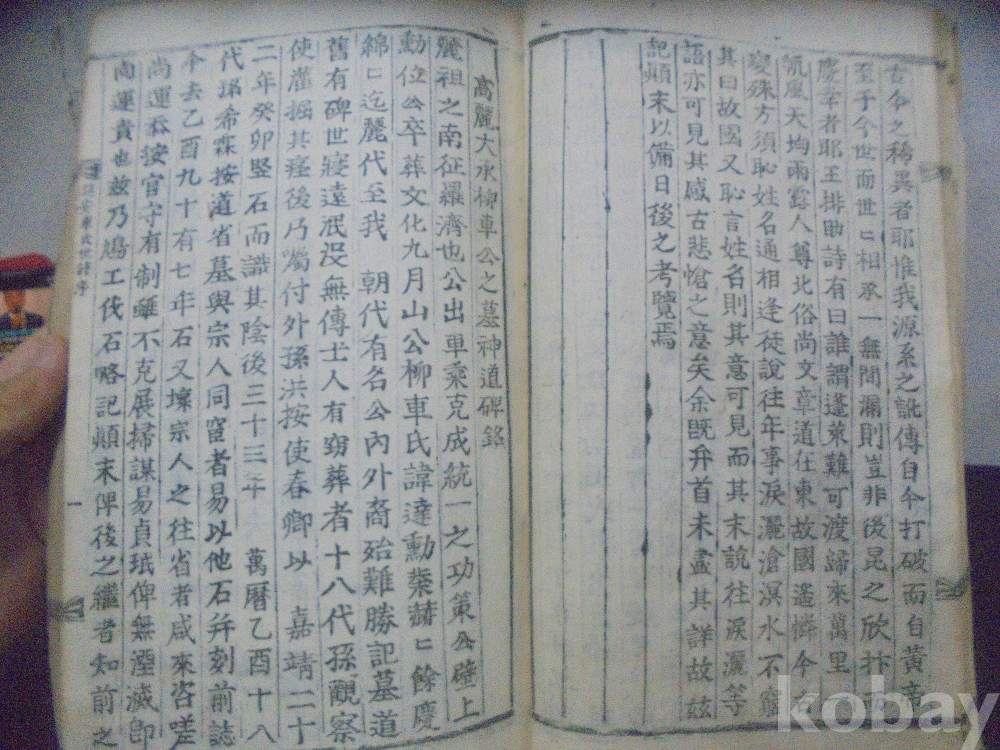 古今之稀異者耶惟我源系之訛傳自今打破而自黃帝
至于今世而世〻相承一無間漏則豈非後昆之欣抃
慶幸者耶王排助詩有曰誰謂蓬萊難可渡歸來萬里
颿風天均雨露人尊北俗尚文章道在東故國遙憐今
變殊方須恥姓名通相逢徒說往年事淚灑滄溟水不
其曰故國又恥言姓名則其意可見而其末說往淚灑等
語亦可見其感古悲愴之意矣余旣弁首未盡其詳故玆
記顚末以備日後之考覽焉
高麗大丞柳車公之墓神道碑銘
麗祖之南征羅濟也公出車乘克成統一之功策公壁上
勳位公卒葬文化九月山公柳車氏諱達勳業赫〻餘慶
綿〻迄麗代至我 朝代有名公內外裔殆難勝記墓道
舊有碑世寢遠泯沒無傳士人有竊葬者十八代孫觀察
使灌掘其瘞後乃囑付外孫洪按使春卿以 嘉靖二十
二年癸卯竪石而識其陰後三十三年 萬曆乙酉十八
代孫希霖按道省墓與宗人同 者易以他石幷刻前誌
今去乙酉九十有七年石又壞宗人之往省者咸來咨嗟
尙運忝按官守有制雖不克展掃謀易貞珉俾無湮滅卽
尙運責也玆乃鳩工伐石略記顚末俾後之繼者知前之
一
kobay